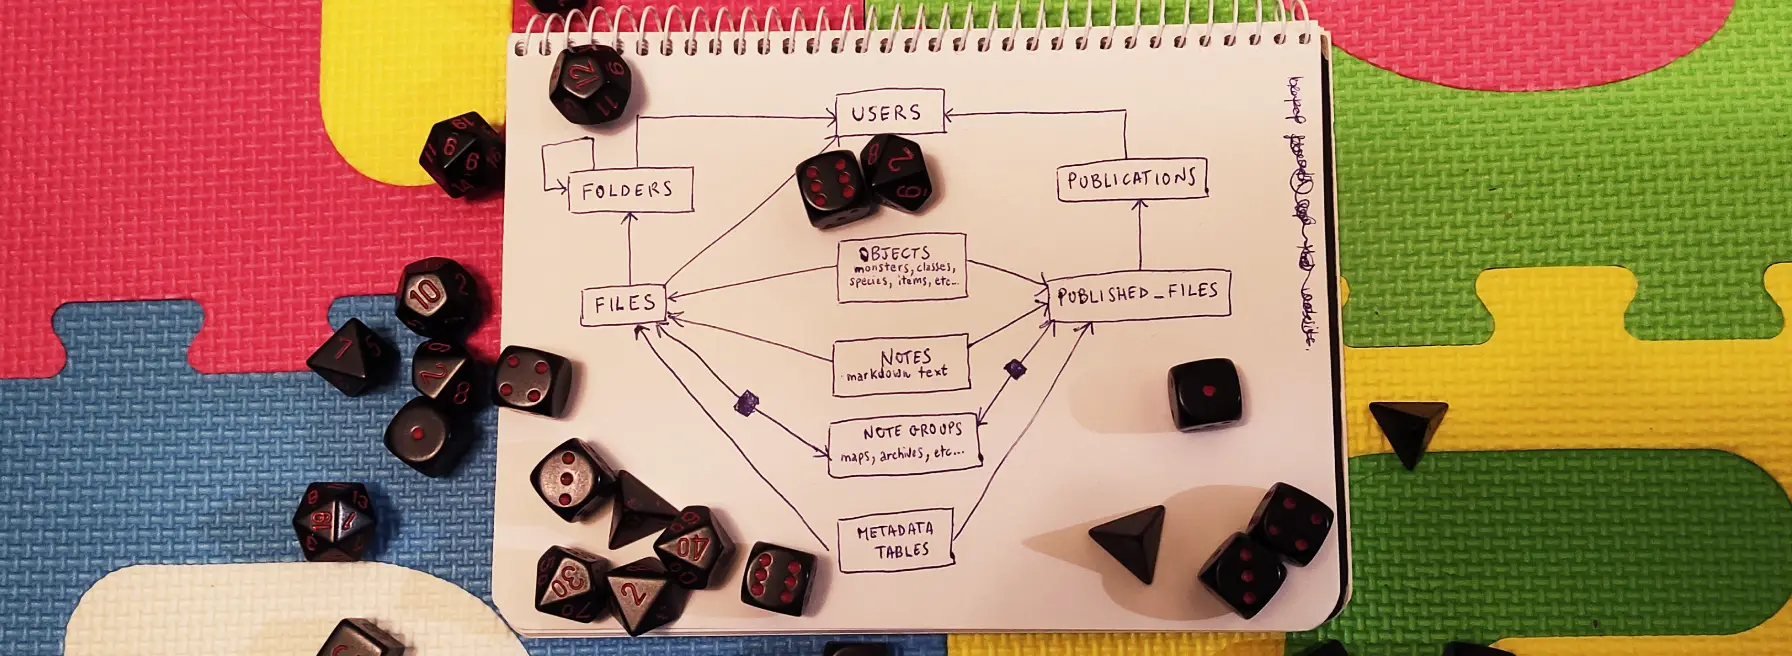 USERS
FOLDERS
PUBLICATIONS
OBJECTS
monsters, classes,
species, items, etc...
FILES
PUBLISHED_FILES
NOTES
markdown text
NOTE GROUPS
maps, archives, etc...
METADATA
TABLES